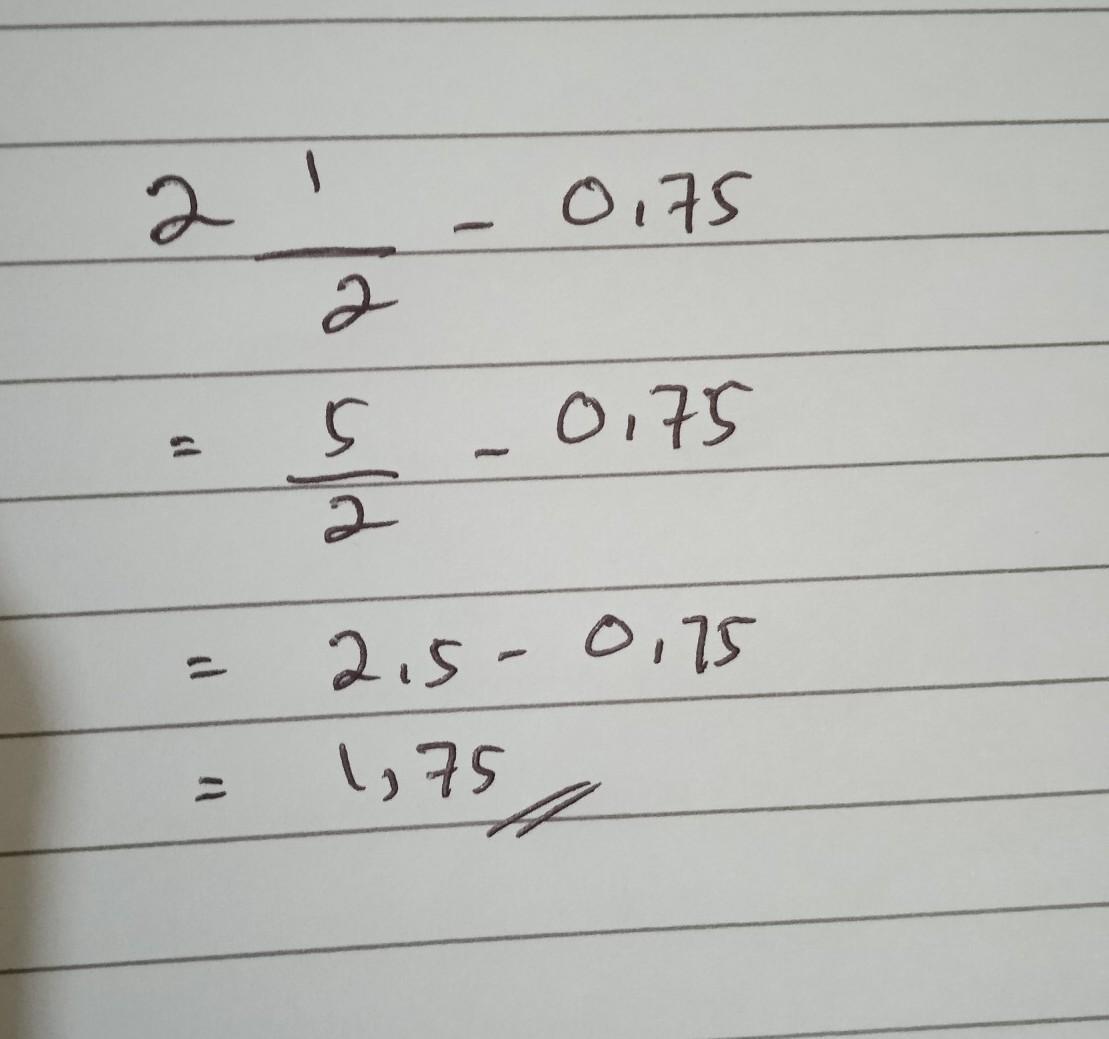 2 1/2 - 0,75
= 5/2 - 0,75
= 2,5 - 0,75
= 1,75